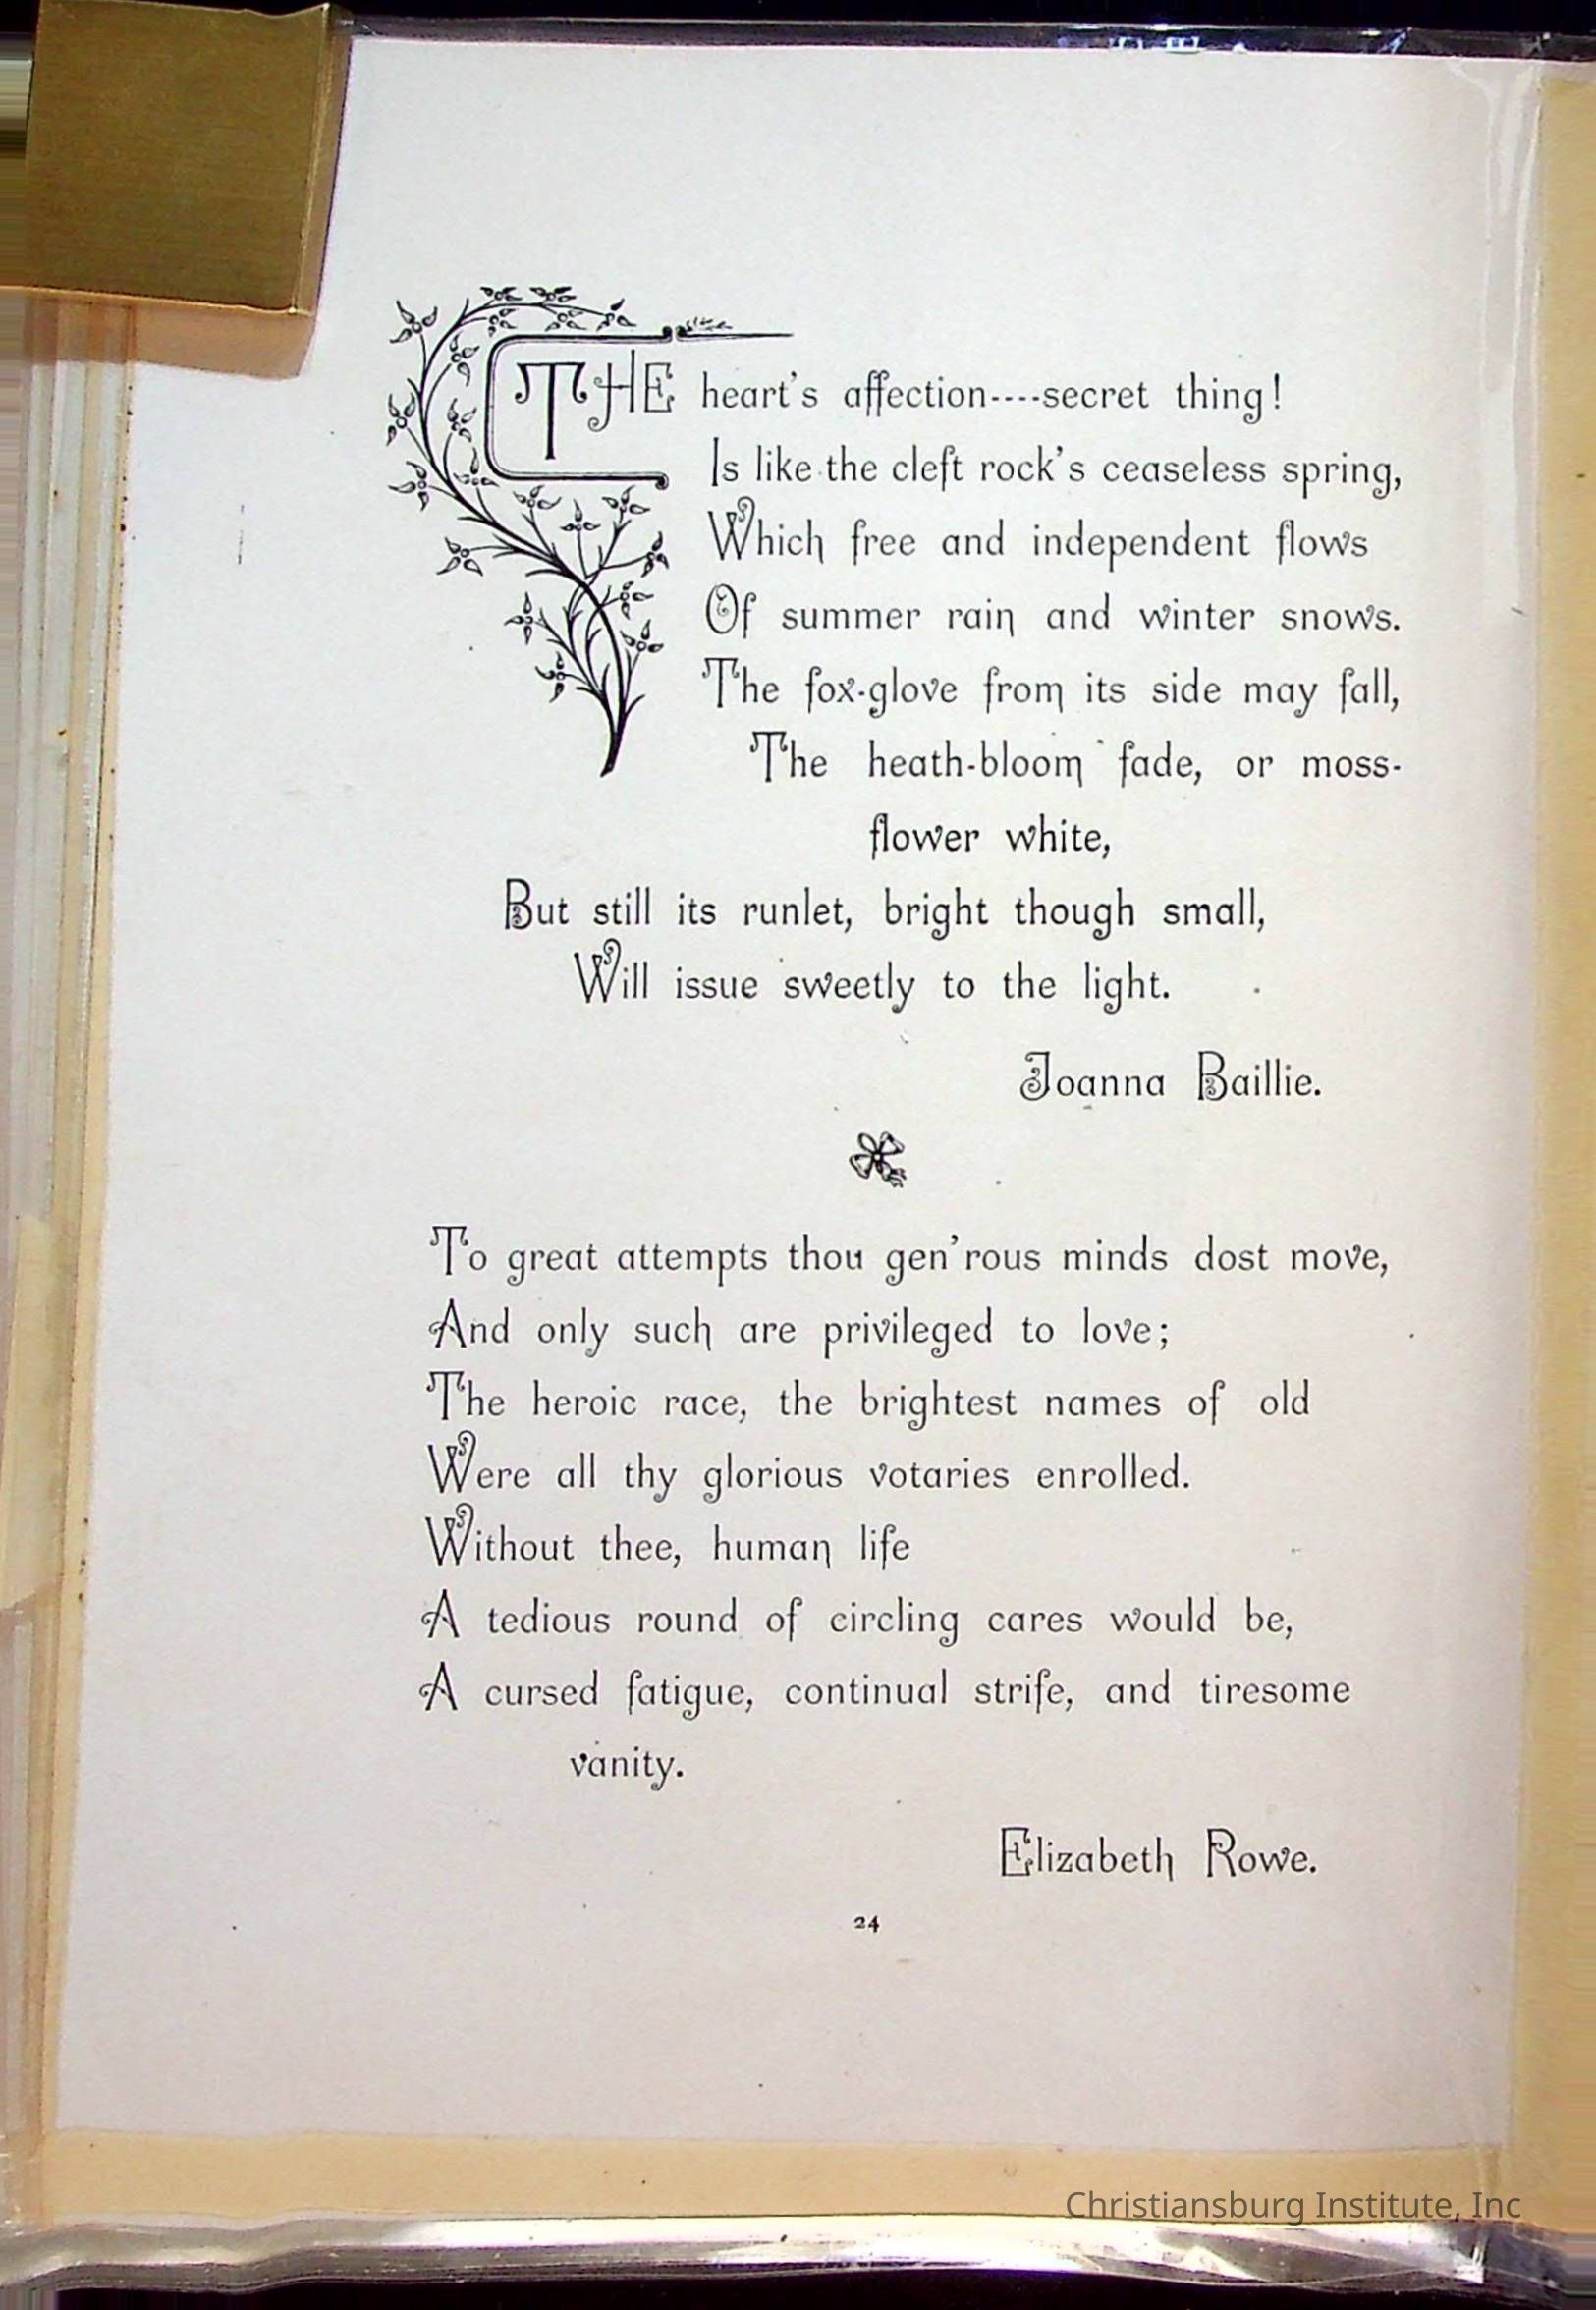 THE heart's affection----secret thing!
Is like the cleft rock's ceaseless spring,
Which free and independent flows
Of summer rain and winter snows.
The fox-glove from its side may fall,
The heath-bloom fade, or moss-
flower white,
But still its runlet, bright though small,
Will issue sweetly to the light.
Joanna Baillie.
To great attempts thou gen'rous minds dost move,
And only such are privileged to love;
The heroic race, the brightest names of old
Were all thy glorious votaries enrolled.
Without thee, human life
A tedious round of circling cares would be,
A cursed fatigue, continual strife, and tiresome
vanity.
Elizabeth Rowe.
24
Christiansburg Institute, Inc